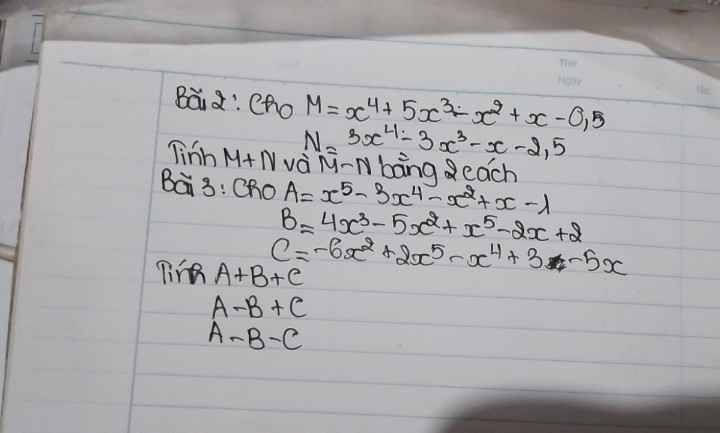 Bài 2: Cho M = x⁴ + 5x³ - x² + x - 0,5
N = 3x⁴ - 3x³ - x - 2,5
Tính M+N và M-N bằng 2 cách
Bài 3: Cho A = x⁵ - 3x⁴ - x² + x - 1
B = 4x³ - 5x² + x⁵ - 2x + 2
C = -6x² + 2x⁵ - x⁴ + 3 - 5x
Tính A+B+C
A-B+C
A-B-C